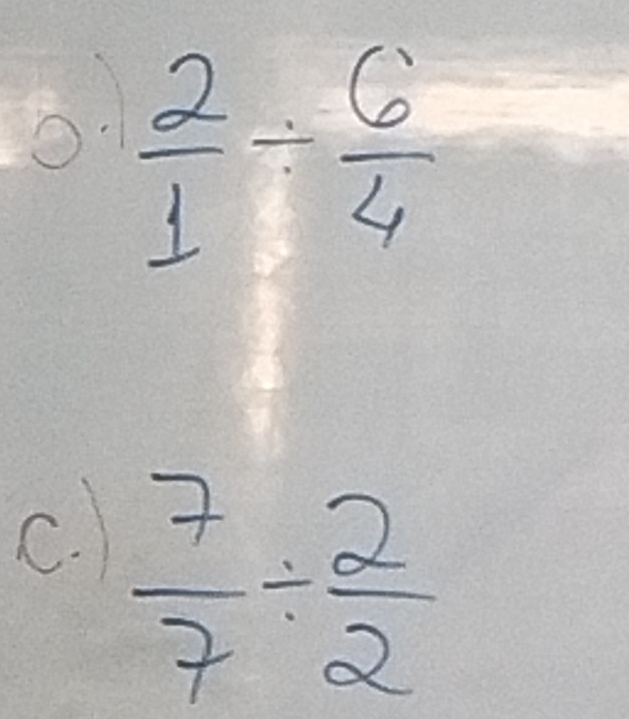 b.) 2/1 ÷ 6/4
c.) 7/7 ÷ 2/2